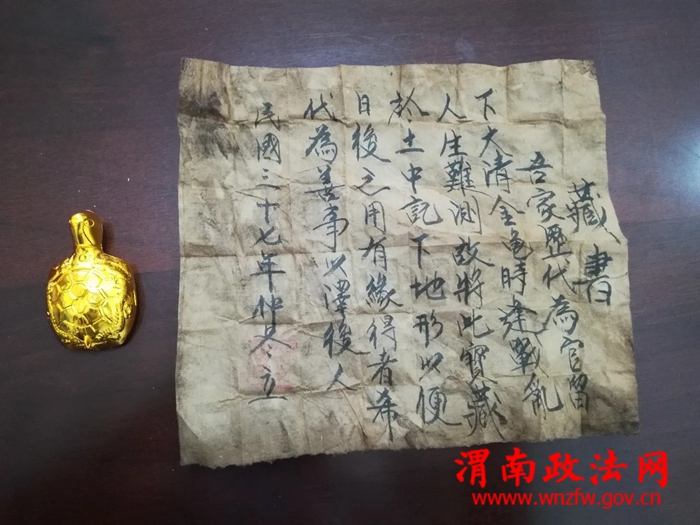 藏書
吾家歷代為官留
下大清金龟時逢戰亂
人生難測故將此寶藏
於土中記下地形以便
日後之用有緣得者希
代為善事以澤後人
民國三十七年仲冬立
渭南政法网
www.wnzfw.gov.cn